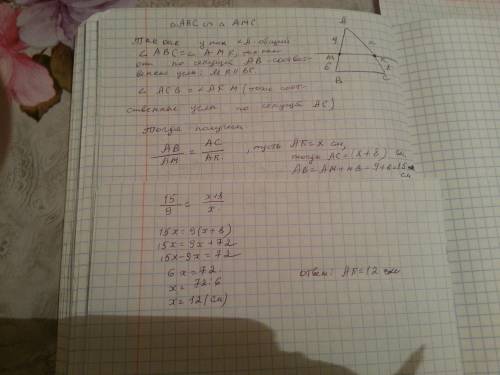 △ABC ∾ △AMC
Так как у них ∠A-общий
∠ABC=∠AMK, так как
они по секущей AB-соответ-
венные углы: MK||BC.
∠ACB = ∠AKM (тоже соот-
ственные углы по секущей AC)
Тогда получим
AB/AM = AC/AK, пусть AK=x см,
тогда AC=(x+8) см
AB=AM+MB=9+6=15 см
15/9 = x+8/x
15x=9(x+8)
15x=9x+72
15x-9x=72
6x=72
x=72:6
x=12(см)
ответ: AK=12 см
A
9
x
M
K
6
8
B
C